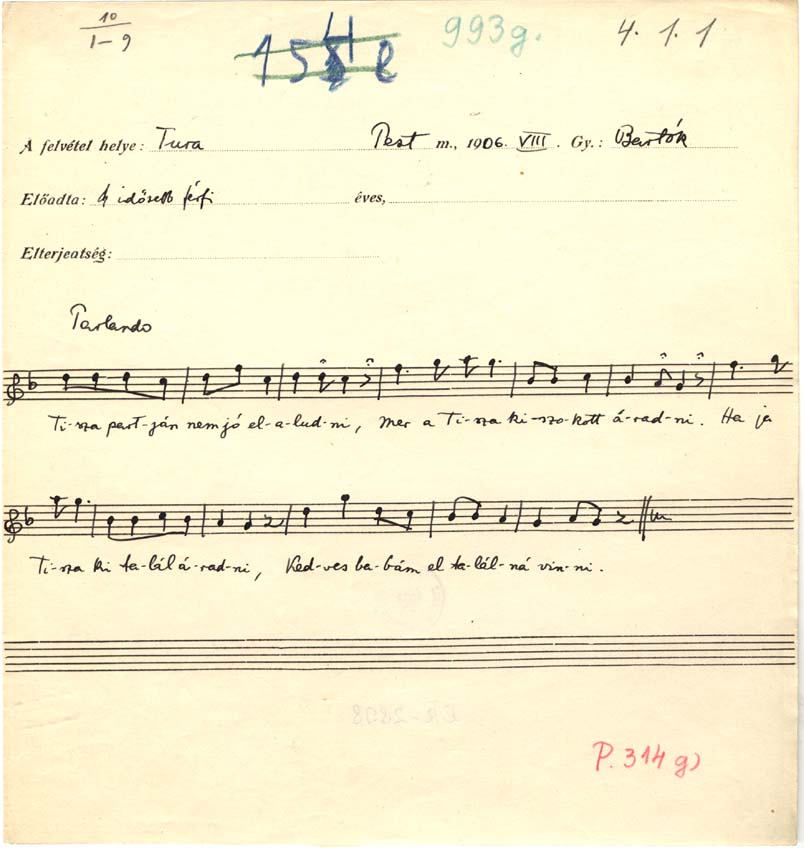 10
1–9
993g.
4. 1. 1
A felvétel helye: Tura Pest m., 1906. VIII. Gy.: Bartók
Előadta: idősebb férfi éves,
Elterjedtség:
Parlando
Ti-sza part-ján nem jó el-a-lud-ni, mer a Ti-sza ki-szo-kott á-rad-ni. Ha ja
Ti-sza ki ta-lál á-rad-ni, Ked-ves ba-bám el ta-lál-ná vin-ni.
P. 314 g)